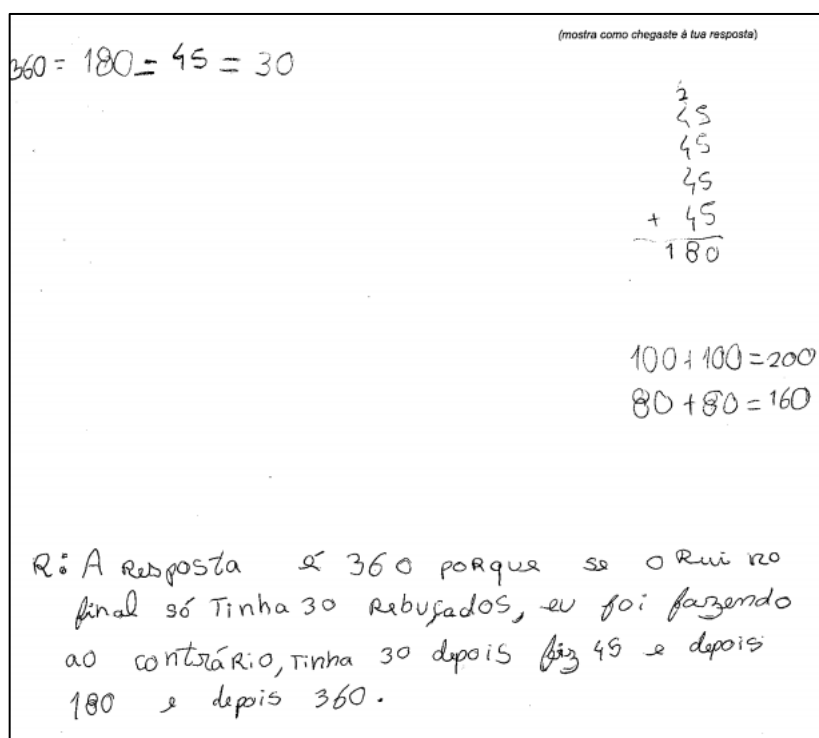 (mostra como chegaste à tua resposta)
360 = 180 = 45 = 30
2
45
45
45
+ 45
180
100 + 100 = 200
80 + 80 = 160
R: A Resposta é 360 porque se o Rui no
final só Tinha 30 Rebuçados, eu foi fazendo
ao contráRio, Tinha 30 depois fiz 45 e depois
180 e depois 360.